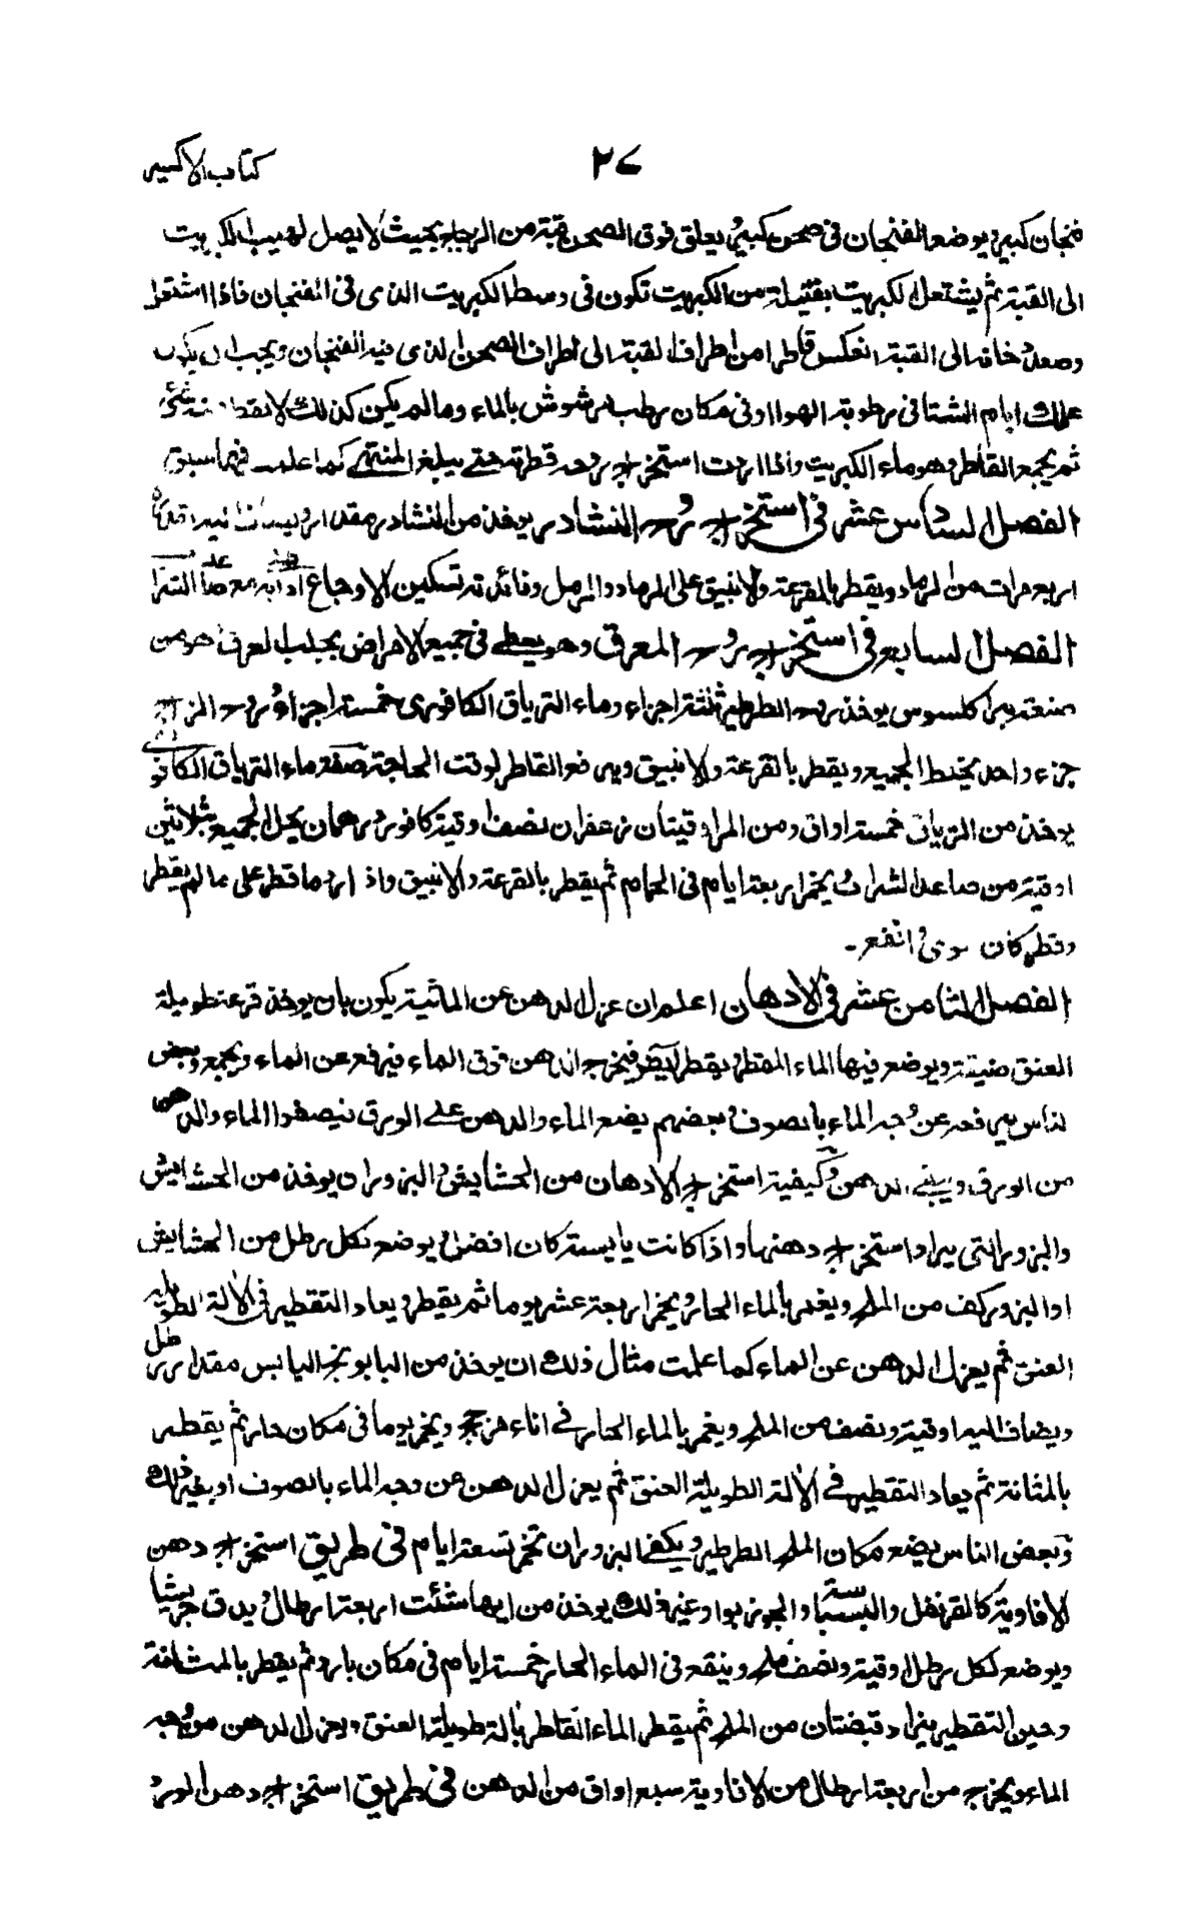 ٢٧ كتاب الاكسير
فنجان كبير ويوضع الفنجان فى صحن كبير ويعلق فوق الصحن قبة من الزجاج بحيث لا يصل لهيب الكبريت
الى القبة ثم يشتعل الكبريت بفتيلة من الكبريت تكون فى وسط الكبريت الذى فى الفنجان فاذا اشتعل
وصعد دخانه الى القبة انعكس قاطرا من اطراف القبة الى اطراف الصحن الذى فيه الفنجان ويجب ان يكون
عملك ايام الشتا فى رطوبة الهوا او فى مكان رطب مرشوش بالماء وما لم يكن كذلك لا يقطر منه شئ
ثم يجمع القاطر وهو ماء الكبريت واذا اردت استخراج روحه قطرته حتى يبلغ المنتهى كما علمت فيما سبق
الفصل السادس عشر فى استخراج روح النشادر يوخذ من النشادر مقدار ويضاف اليه قدره
اربع مرات من الرماد ويقطر بالقرعة والانبيق على الرماد والرمل وفائدته تسكين الاوجاع
الفصل السابع فى استخراج روح المعرق وهو يعطى فى جميع الامراض بجلب العرق وهو من
صنعة براكلسوس يوخذ روح الطرطير ثلثة اجزاء وماء الترياق الكافورى خمسة اجزاء وروح الزاج
جزء واحد يخلط الجميع ويقطر بالقرعة والانبيق ويرفع القاطر لوقت الحاجة صفة ماء الترياق الكافورى
يوخذ من الترياق خمسة اواق ومن المر اوقيتان زعفران نصف اوقية كافور درهمان يحل الجميع بثلاثين
اوقية من صاعد الشراب ويخمر اربعة ايام فى الحمام ثم يقطر بالقرعة والانبيق واذا رد ما قطر على ما لم يقطر
وقطر كان اقوى وانفع۔
الفصل الثامن عشر فى الادهان اعلم ان عزل الدهن عن المائية يكون بان يوخذ قرعة طويلة
العنق ضيقة ويوضع فيها الماء المقطر ويقطر ايضا فيخرج الدهن فوق الماء فيرفع عن الماء ويجمع وبعض
الناس يرفعه عن وجه الماء بالصوف وبعضهم يضع الماء والدهن على الورق فيصفوا الماء والدهن
من الورق ويبقى الدهن وكيفية استخراج الادهان من الحشايش والبزور ان يوخذ من الحشايش
والبزور التى يراد استخراج دهنها واذا كانت يابسة كان افضل ويوضع لكل رطل من الحشايش
او البزور كف من الملح ويغمر بالماء الحار ويخمر اربعة عشر يوما ثم يقطر ويعاد التقطير فى الآلة الطويلة
العنق ثم يعزل الدهن عن الماء كما علمت مثال ذلك ان يوخذ من البابونج اليابس مقدار رطل
ويضاف اليه اوقية ونصف من الملح ويغمر بالماء الحار فى اناء من حجر ويخمر يوما فى مكان حار ثم يقطر
بالمثانة ثم يعاد التقطير فى الآلة الطويلة العنق ثم يعزل الدهن عن وجه الماء بالصوف او بغير ذلك
وبعض الناس يضع مكان الملح الطرطير ويكفى البزور ان تخمر تسعة ايام فى طريق استخراج دهن
الافاوية كالقرنفل والبسباسة والجوزبوا وغير ذلك يوخذ من ايها شئت اربعة ارطال ويدق جريشا
ويوضع لكل رطل اوقية ونصف ملح وينقع فى الماء الحار خمسة ايام فى مكان بارد ثم يقطر بالمثانة
وحين التقطير يزاد قبضتان من الملح ثم يقطر الماء القاطر بآلة طويلة العنق ويعزل الدهن من وجه
الماء ويخرج من اربعة ارطال من الافاوية سبع اواق من الدهن فى طريق استخراج دهن اللوز